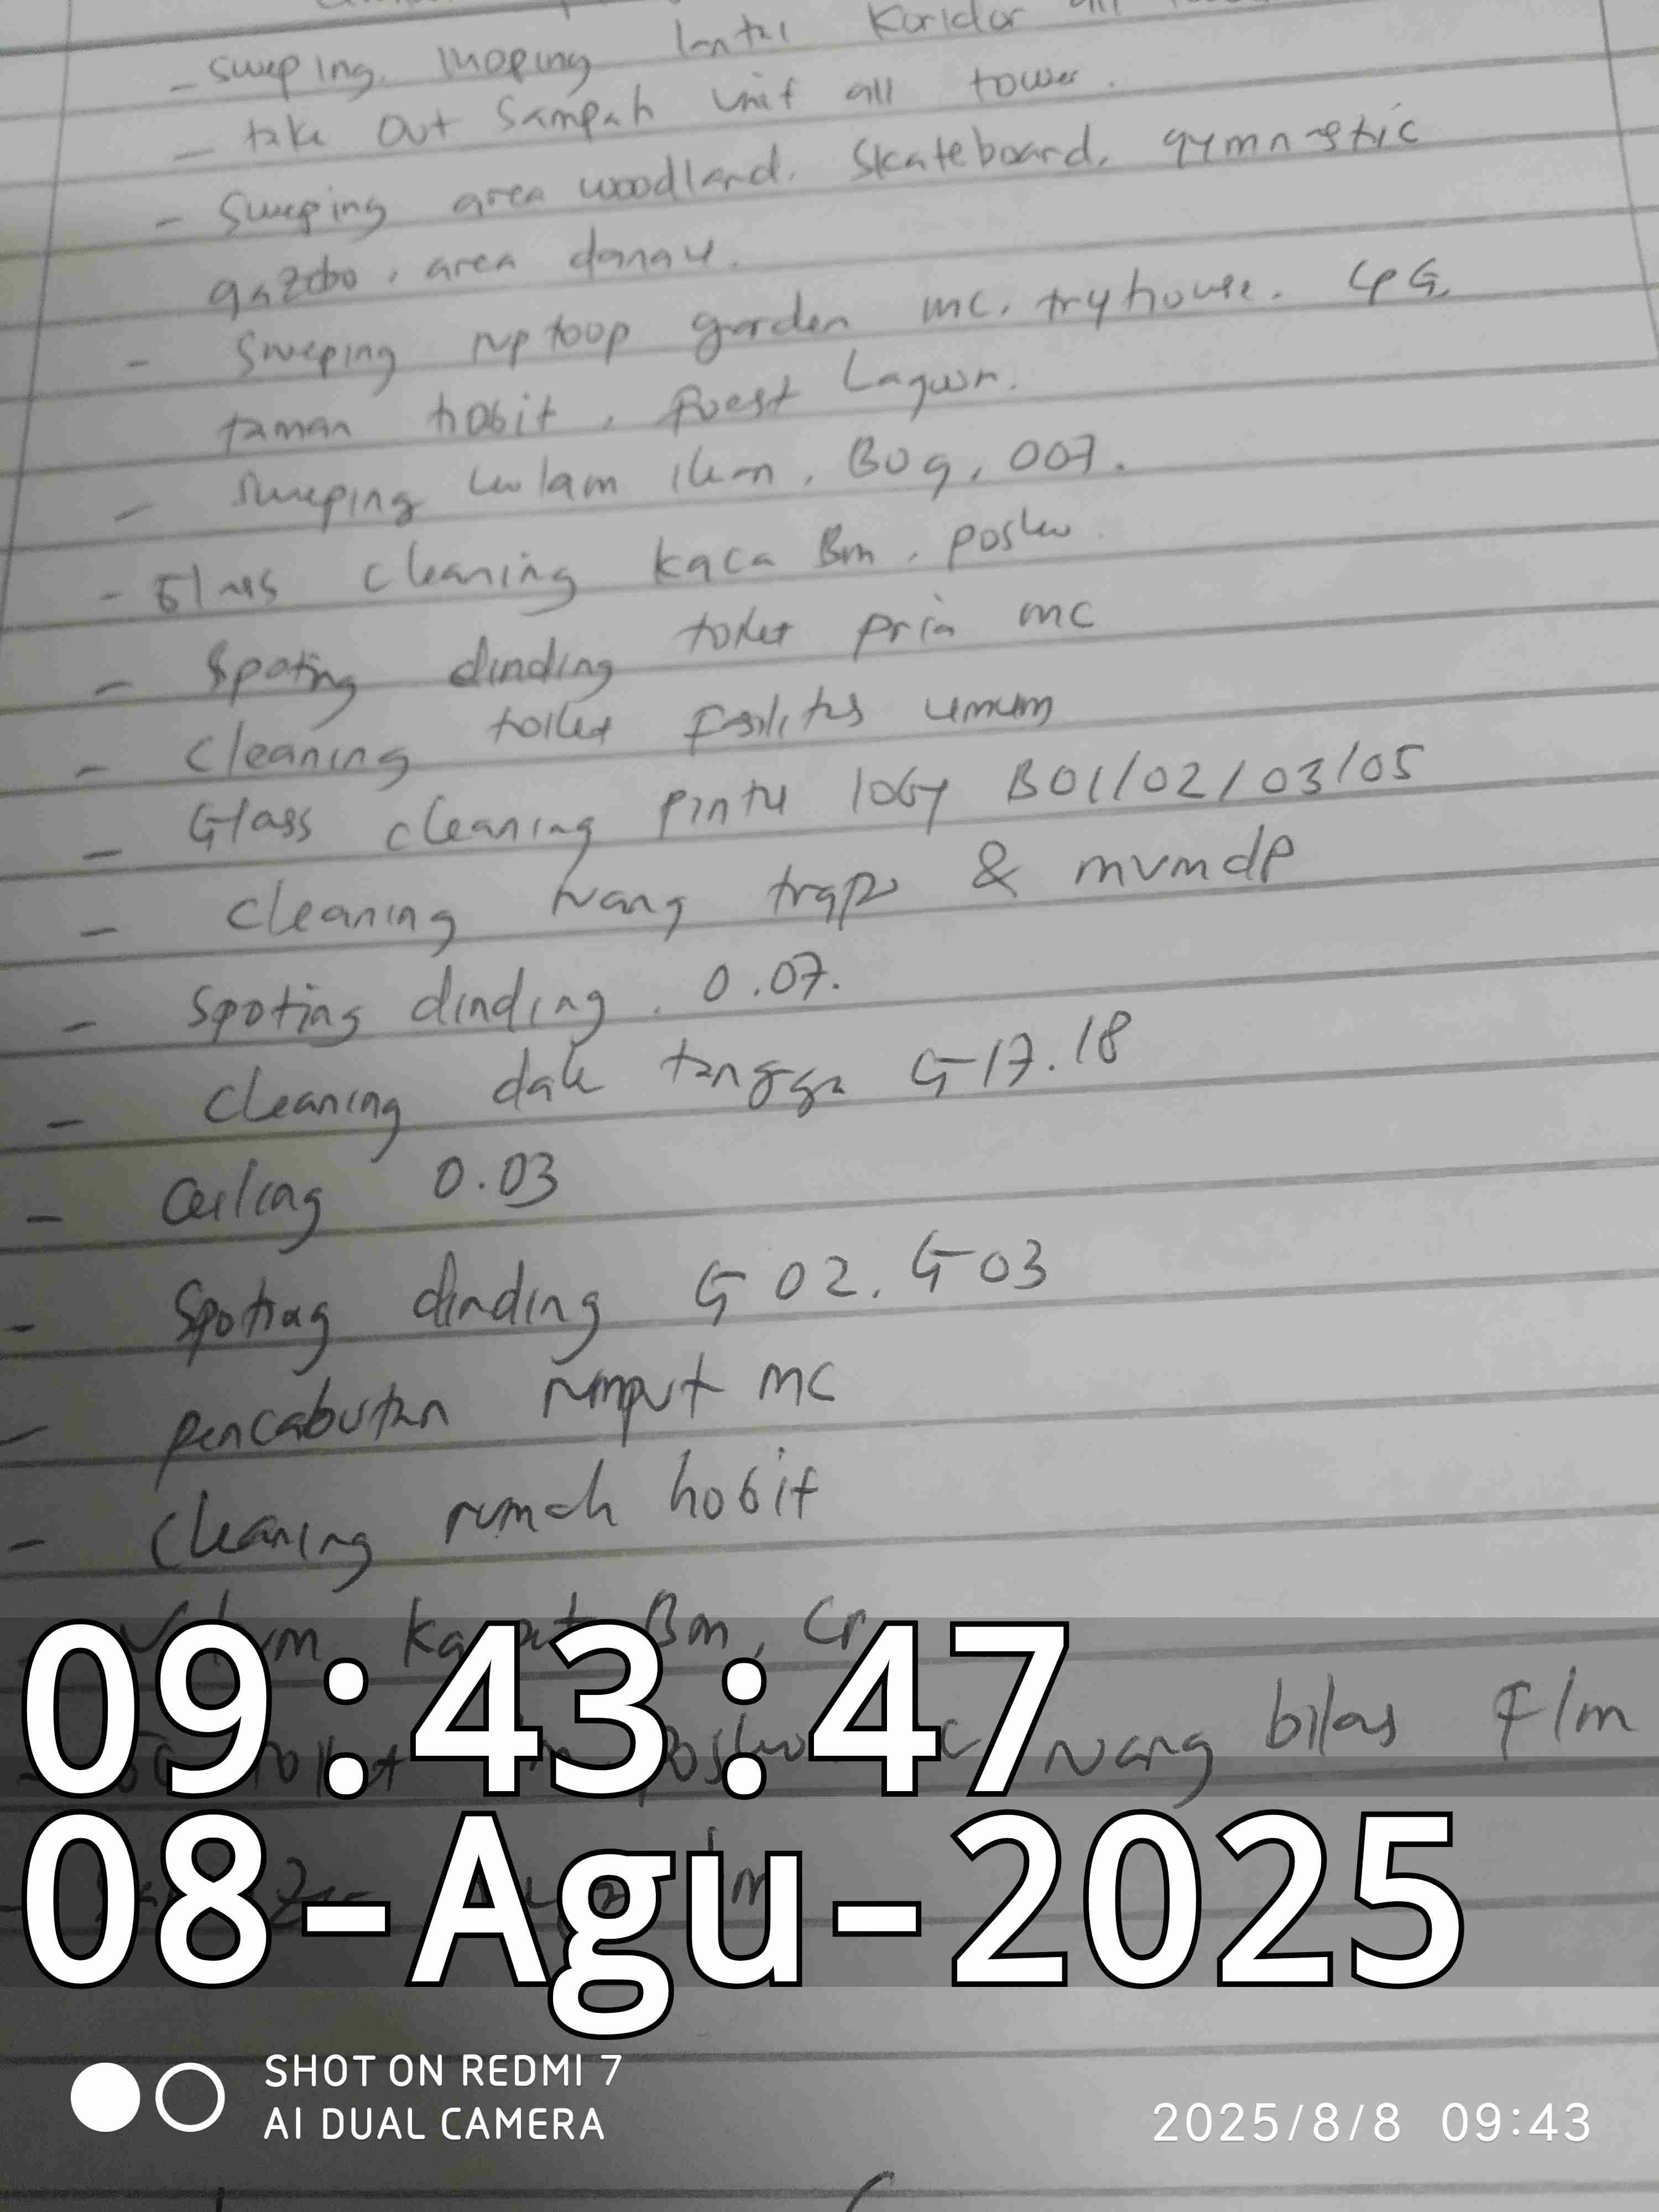 - sweping, moping lantai Koridor all
- take out Sampah unit all tower.
- Sweping area woodland, Skateboard, gymnastic
gazebo, area danau.
- Sweping garden mc, tryhouse.
taman hobit, Forest Lagun.
- Sweping kolam ikan, B09, 007.
- Glass cleaning kaca Bm, posko
- Spoting dinding toilet pria mc
- cleaning toilet Fasilitas umum
- Glass cleaning pintu loby B01/02/03/05
- cleaning ruang trapo & mvmdp
- Spoting dinding. 0.07.
- cleaning dak tangga G17.18
- Ceiling 0.03
- Spoting dinding G02. G03
- pencabutan rumput mc
- cleaning rumah hobit
Bm,
ruang bilas Flm
09:43:47
08-Agu-2025
SHOT ON REDMI 7
AI DUAL CAMERA
2025/8/8 09:43